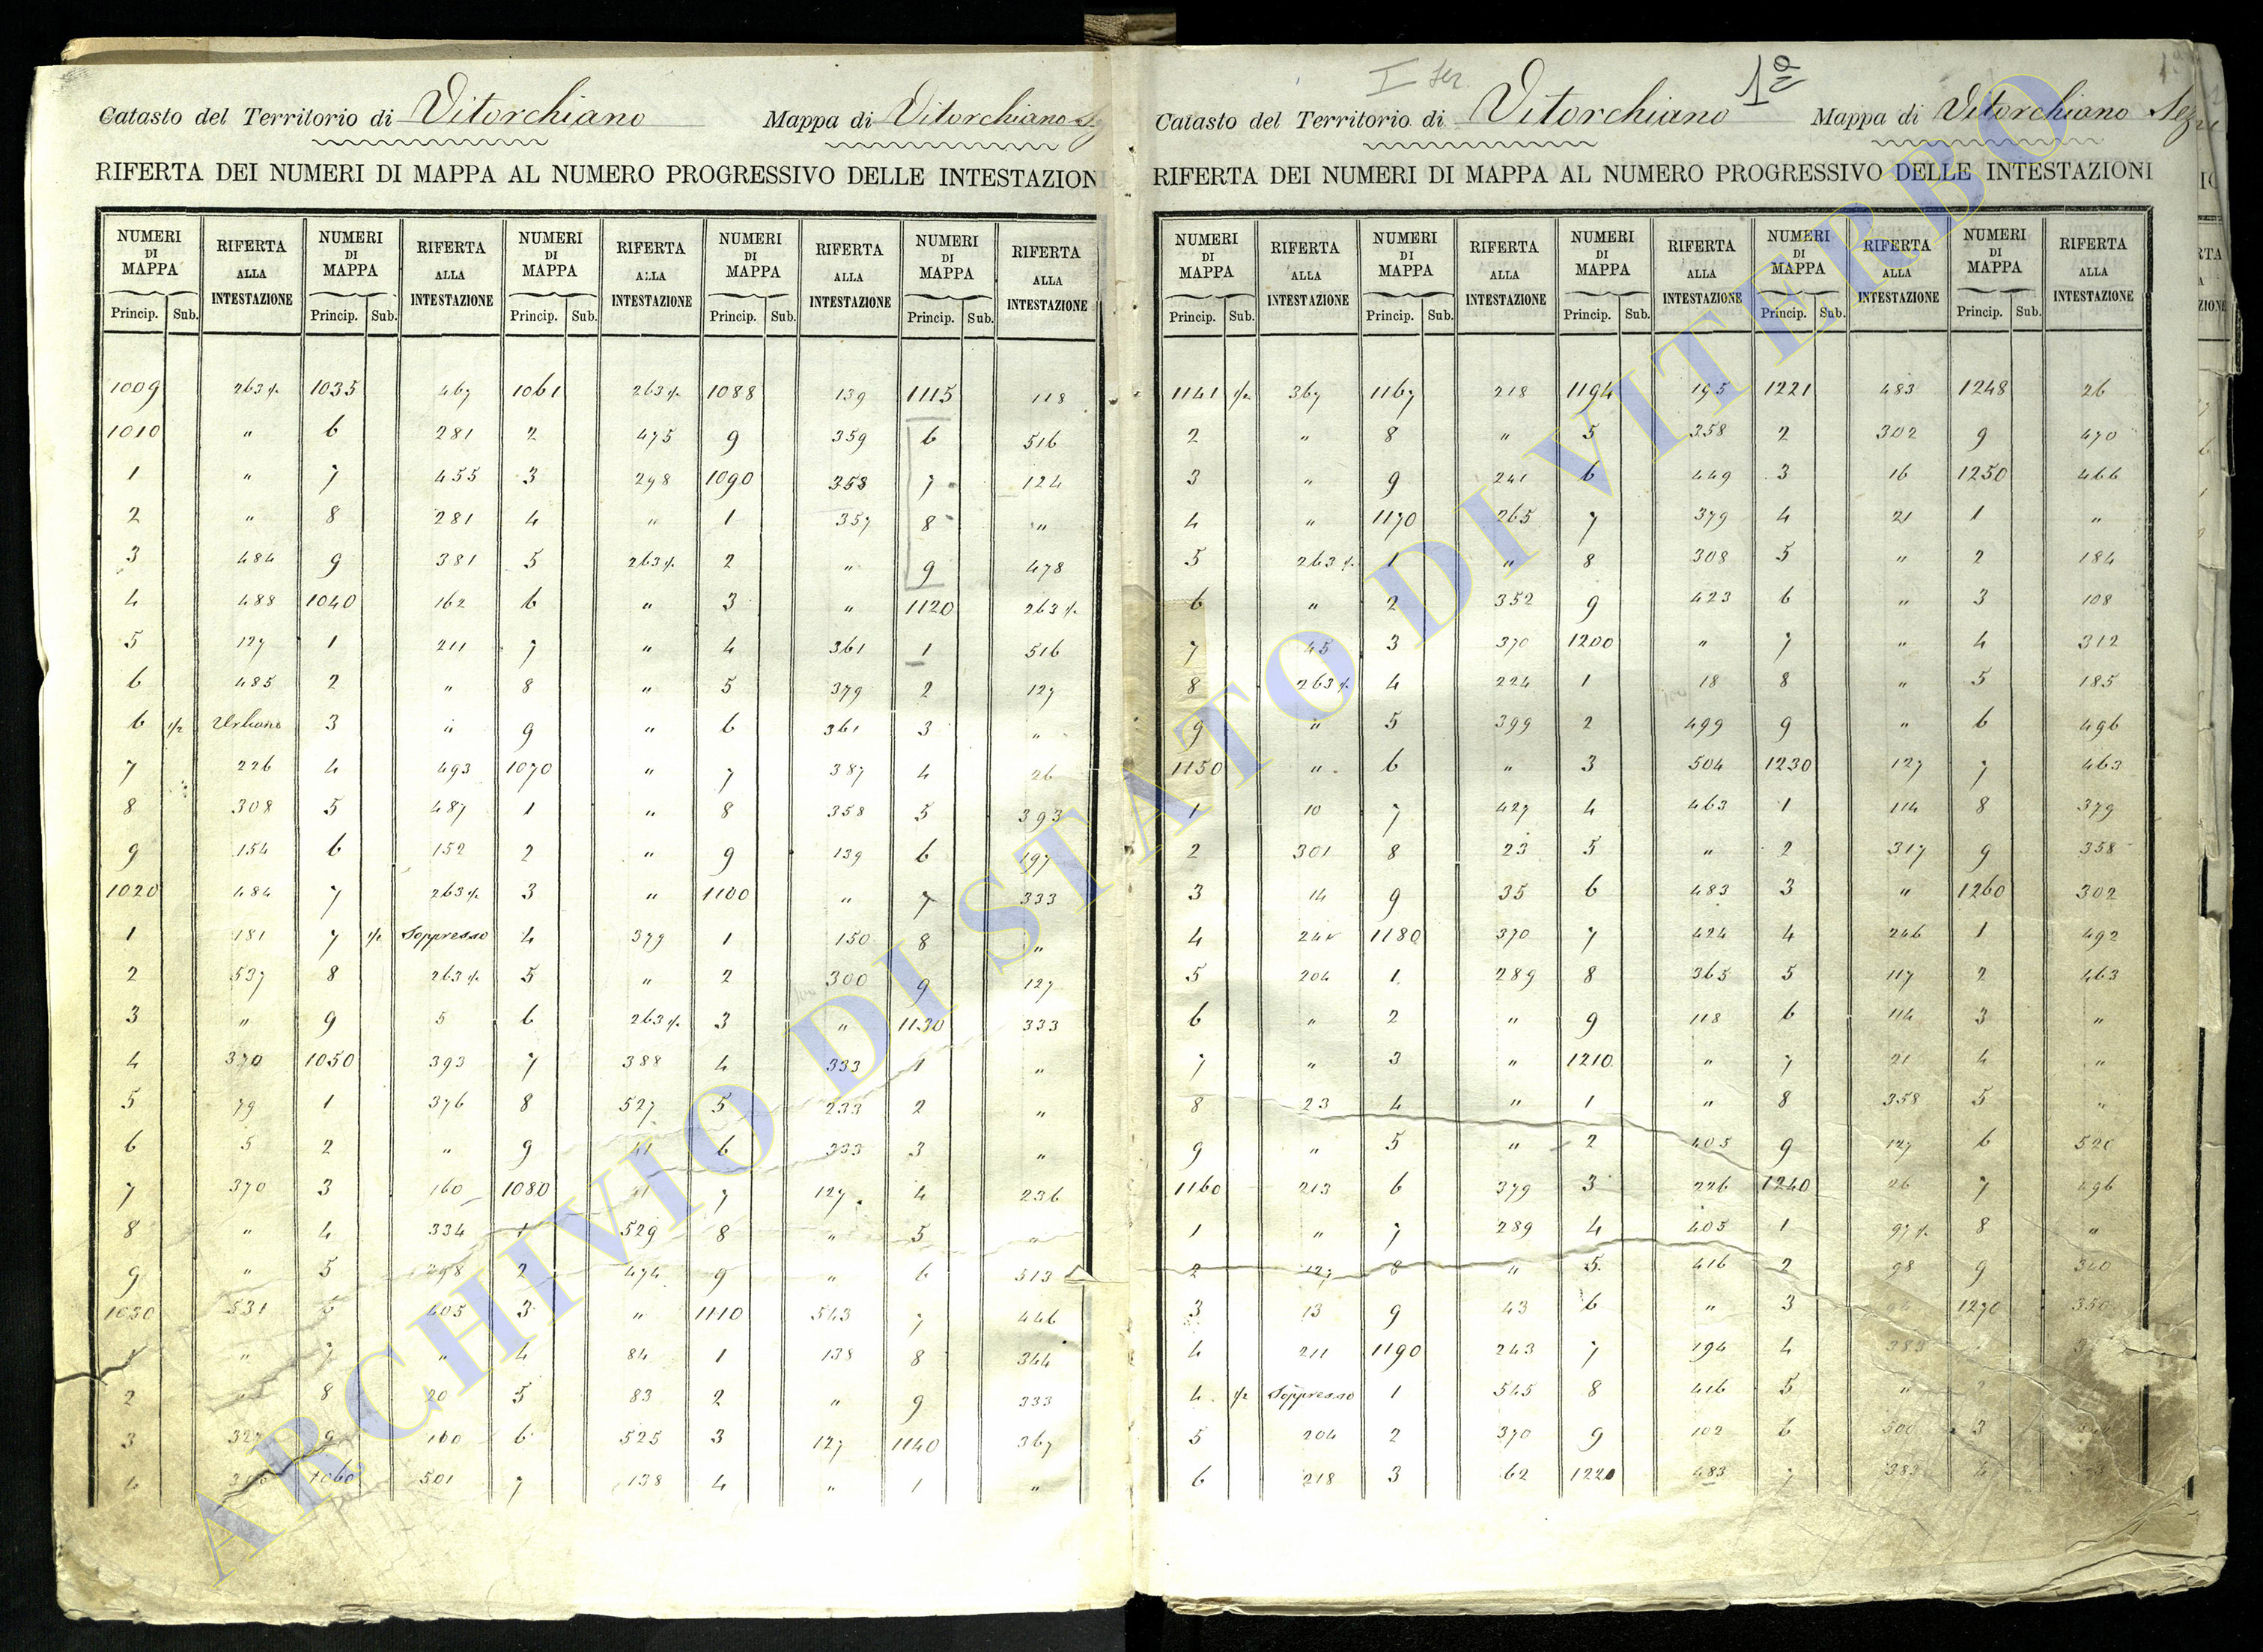 Catasto del Territorio di Vitorchiano Mappa di Vitorchiano
RIFERTA DEI NUMERI DI MAPPA AL NUMERO PROGRESSIVO DELLE INTESTAZIONI
NUMERI DI MAPPA RIFERTA ALLA INTESTAZIONE NUMERI DI MAPPA RIFERTA ALLA INTESTAZIONE NUMERI DI MAPPA RIFERTA ALLA INTESTAZIONE NUMERI DI MAPPA RIFERTA ALLA INTESTAZIONE NUMERI DI MAPPA RIFERTA ALLA INTESTAZIONE
Princip. Sub. Princip. Sub. Princip. Sub. Princip. Sub. Princip. Sub.
1009 263½ 1035 467 1061 263½ 1088 139 1115 118
1010 " 6 281 2 475 9 359 6 516
1 " 7 455 3 298 1090 358 7 124
2 " 8 281 4 " 1 357 8 "
3 484 9 381 5 263½ 2 " 9 478
4 488 1040 162 6 " 3 " 1120 263½
5 127 1 211 7 " 4 361 1 516
6 485 2 " 8 " 5 379 2 127
6 ½ Urbano 3 " 9 " 6 361 3 "
7 226 4 493 1070 " 7 387 4 26
8 308 5 487 1 " 8 358 5 393
9 154 6 152 2 " 9 139 6 197
1020 484 7 263½ 3 " 1100 " 7 333
1 181 7 ½ Soppresso 4 379 1 150 8 "
2 537 8 263½ 5 " 2 300 9 127
3 " 9 5 6 263½ 3 " 1130 333
4 370 1050 393 7 388 4 333 1 "
5 79 1 376 8 527 5 233 2 "
6 5 2 " 9 41 6 333 3 "
7 370 3 160 1080 41 7 127 4 236
8 " 4 334 1 529 8 " 5 "
9 " 5 298 2 474 9 " 6 513
1030 531 6 405 3 " 1110 543 7 446
1 " 7 " 4 84 1 138 8 344
2 " 8 20 5 83 2 " 9 333
3 327 9 100 6 525 3 127 1140 367
4 1060 501 7 138 4 " 1 "
I Sez. 1ª
Catasto del Territorio di Vitorchiano Mappa di Vitorchiano Sez
RIFERTA DEI NUMERI DI MAPPA AL NUMERO PROGRESSIVO DELLE INTESTAZIONI
NUMERI DI MAPPA RIFERTA ALLA INTESTAZIONE NUMERI DI MAPPA RIFERTA ALLA INTESTAZIONE NUMERI DI MAPPA RIFERTA ALLA INTESTAZIONE NUMERI DI MAPPA RIFERTA ALLA INTESTAZIONE NUMERI DI MAPPA RIFERTA ALLA INTESTAZIONE
Princip. Sub. Princip. Sub. Princip. Sub. Princip. Sub. Princip. Sub.
1141 ½ 367 1167 218 1194 195 1221 483 1248 26
2 " 8 " 5 358 2 302 9 470
3 " 9 241 6 449 3 16 1250 466
4 " 1170 265 7 379 4 21 1 "
5 263½ 1 " 8 308 5 " 2 184
6 " 2 352 9 423 6 " 3 108
7 45 3 370 1200 " 7 " 4 312
8 263½ 4 224 1 18 8 " 5 185
9 " 5 399 2 499 9 " 6 496
1150 " 6 " 3 504 1230 127 7 463
1 10 7 427 4 463 1 114 8 379
2 301 8 23 5 " 2 317 9 358
3 14 9 35 6 483 3 " 1260 302
4 24 1180 370 7 424 4 246 1 492
5 204 1 289 8 365 5 117 2 463
6 " 2 " 9 118 6 114 3 "
7 " 3 " 1210 " 7 21 4 "
8 23 4 " 1 " 8 358 5 "
9 " 5 " 2 405 9 127 6 520
1160 213 6 379 3 226 1240 26 7 496
1 " 7 289 4 405 1 97½ 8 "
2 127 8 " 5 416 2 98 9 340
3 13 9 43 6 " 3 1270 350
4 211 1190 243 7 194 4 383
4 ½ Soppresso 1 545 8 416 5 " 2
5 204 2 370 9 102 6 500 3
6 218 3 62 1220 483 7 383 4
ARCHIVIO DI STATO DI VITERBO